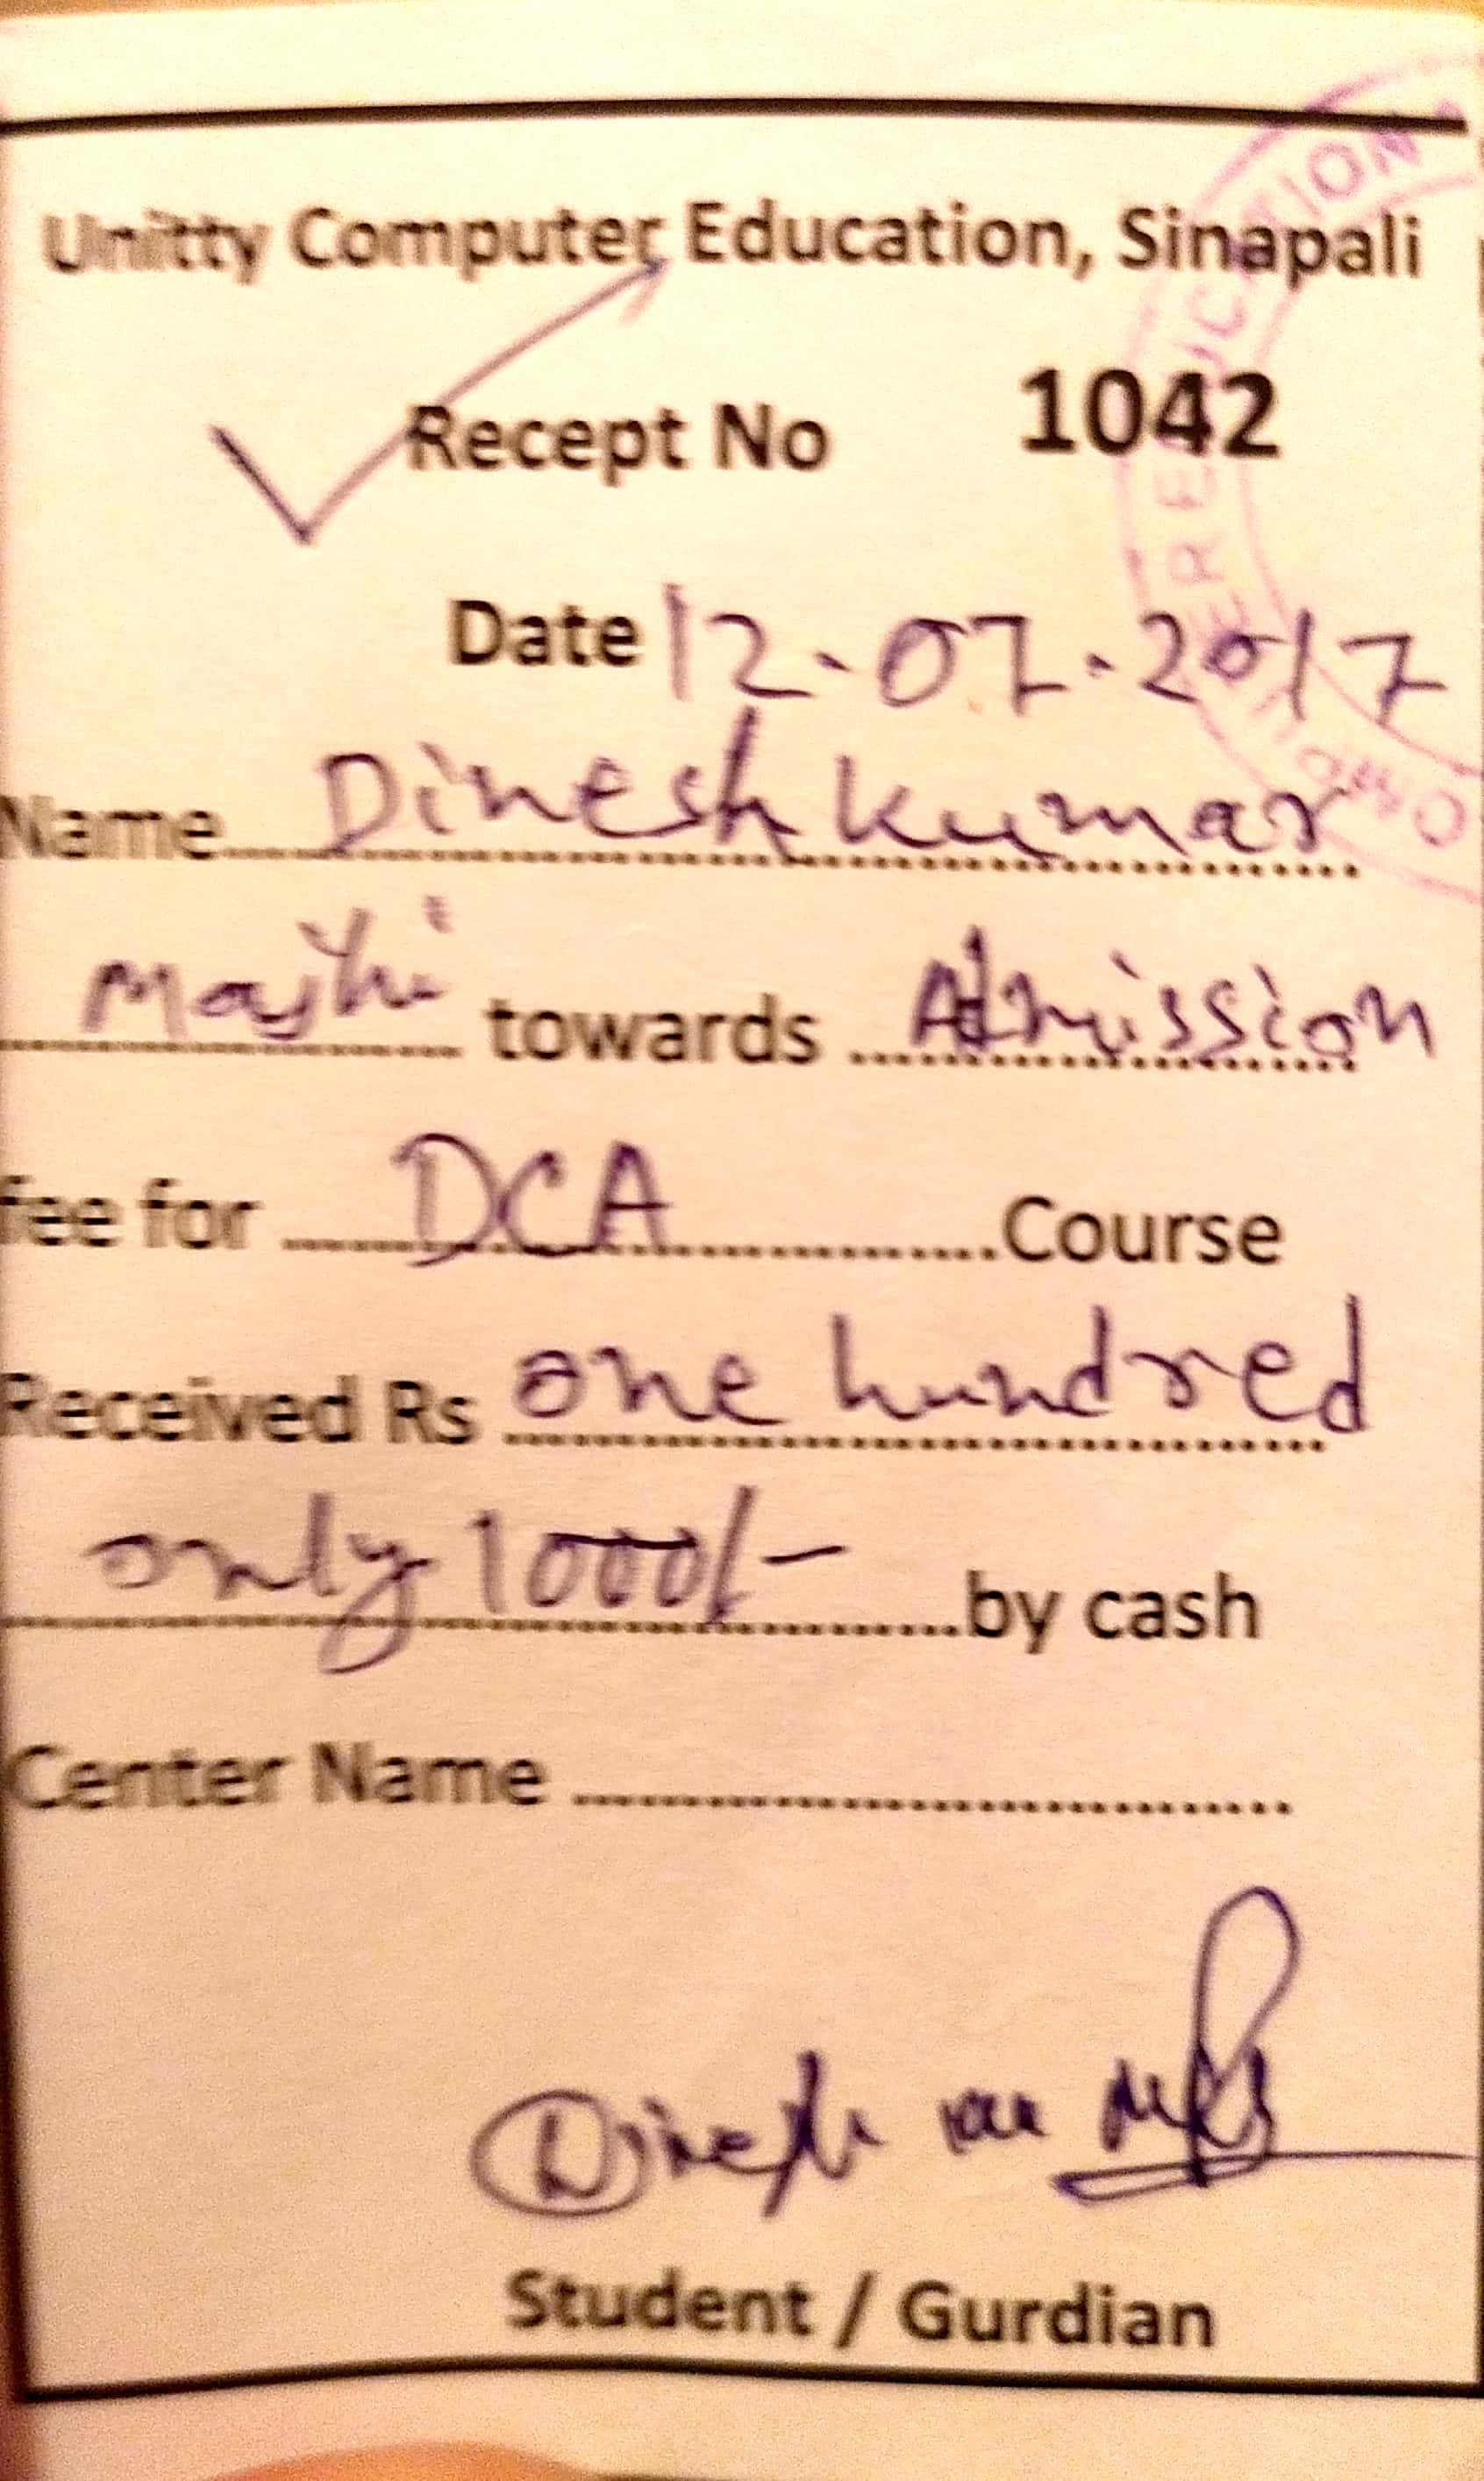 Unitty Computer Education, Sinapali
Recept No 1042
Date 12-07-2017
Name Dinesh kumar
Majhi towards Admission
fee for DCA Course
Received Rs one hundred
only 1000/- by cash
Center Name
Dinesh
Student / Gurdian